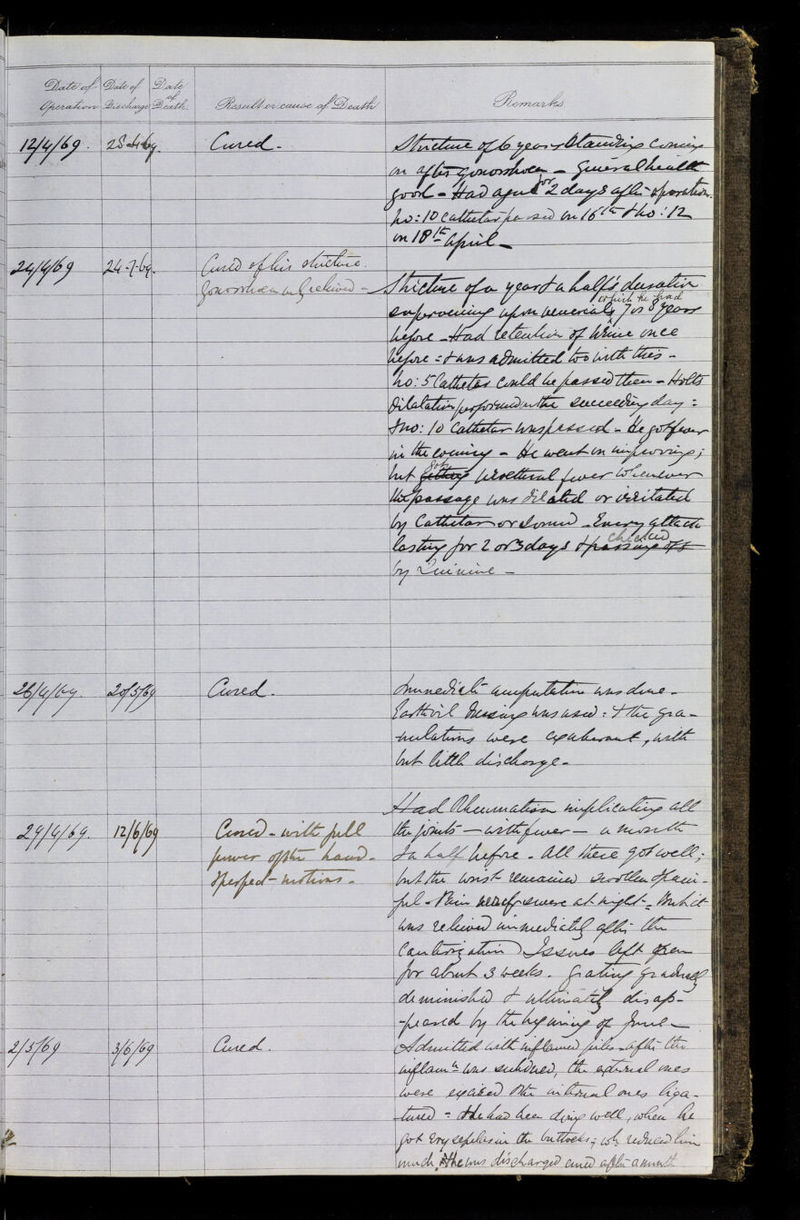 Date of Operation
Date of Discharge
Date of Death
Result or cause of Death
Remarks
12/4/69. 28-4-69. Cured.
Stricture of 6 years standing coming
on after gonorrhoea - General health
good - Had ague for 2 days after operation.
No: 10 catheter passed on 16th & No: 12
on 18th April -
24/4/69 24-7-69. Cured of his stricture.
Gonorrhoea only relieved -
Stricture of a year & a half's duration
supervening upon venereal, which he had 7 or 8 years
before - Had retention of urine once
before = & was admitted too with this -
No: 5 Catheter could be passed then - Holts
Dilatation performed on the succeeding day =
& no: 10 Catheter was passed - He got fever
in the evening - He went on improving;
but got urethral fever whenever
the passage was dilated or irritated
by Catheter or Sound - Every attack
lasting for 2 or 3 days & passing off checked
by Quinine -
26/4/69. 20/5/69 Cured.
Immediate amputation was done -
Earth oil dressing was used: & the gra-
-nulations were exuberant, with
but little discharge -
29/4/69. 12/6/69 Cured - with full
power of the hand -
& perfect motions -
Had Rheumatism implicating all
the joints - with fever - a month
& a half before - All these got well;
but the wrist remained swollen & pain-
ful - Pain very severe at night - But it
was relieved immediately after the
Cauterization Issues left open
for about 3 weeks. Grating gradually
deminished & ultimately disap-
-peared by the begining of June -
2/5/69 3/6/69 Cured.
Admitted with inflamed piles - after the
inflamn was subdued, the external ones
were excised & the internal ones liga-
tured = He had been doing well, when he
got Erysepelas in the buttocks; wh reduced him
much, & he was discharged cured after a month